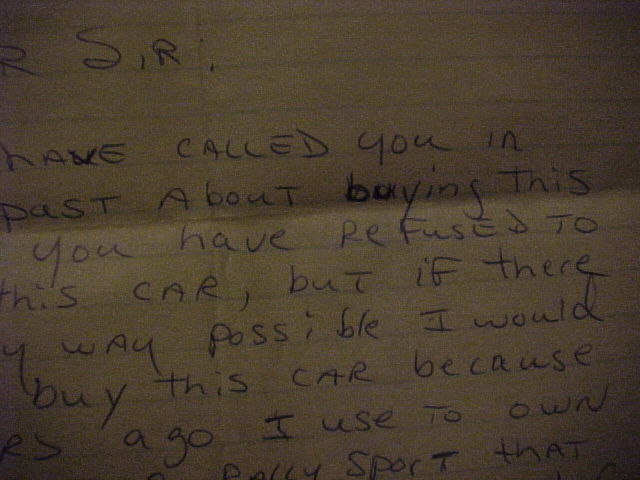 R SIR:
HAVE CALLED you in
past About buying This
you have REFUSED TO
this CAR, but if there
y WAY possible I would
buy this CAR because
RS ago I use To own
Rally Sport that